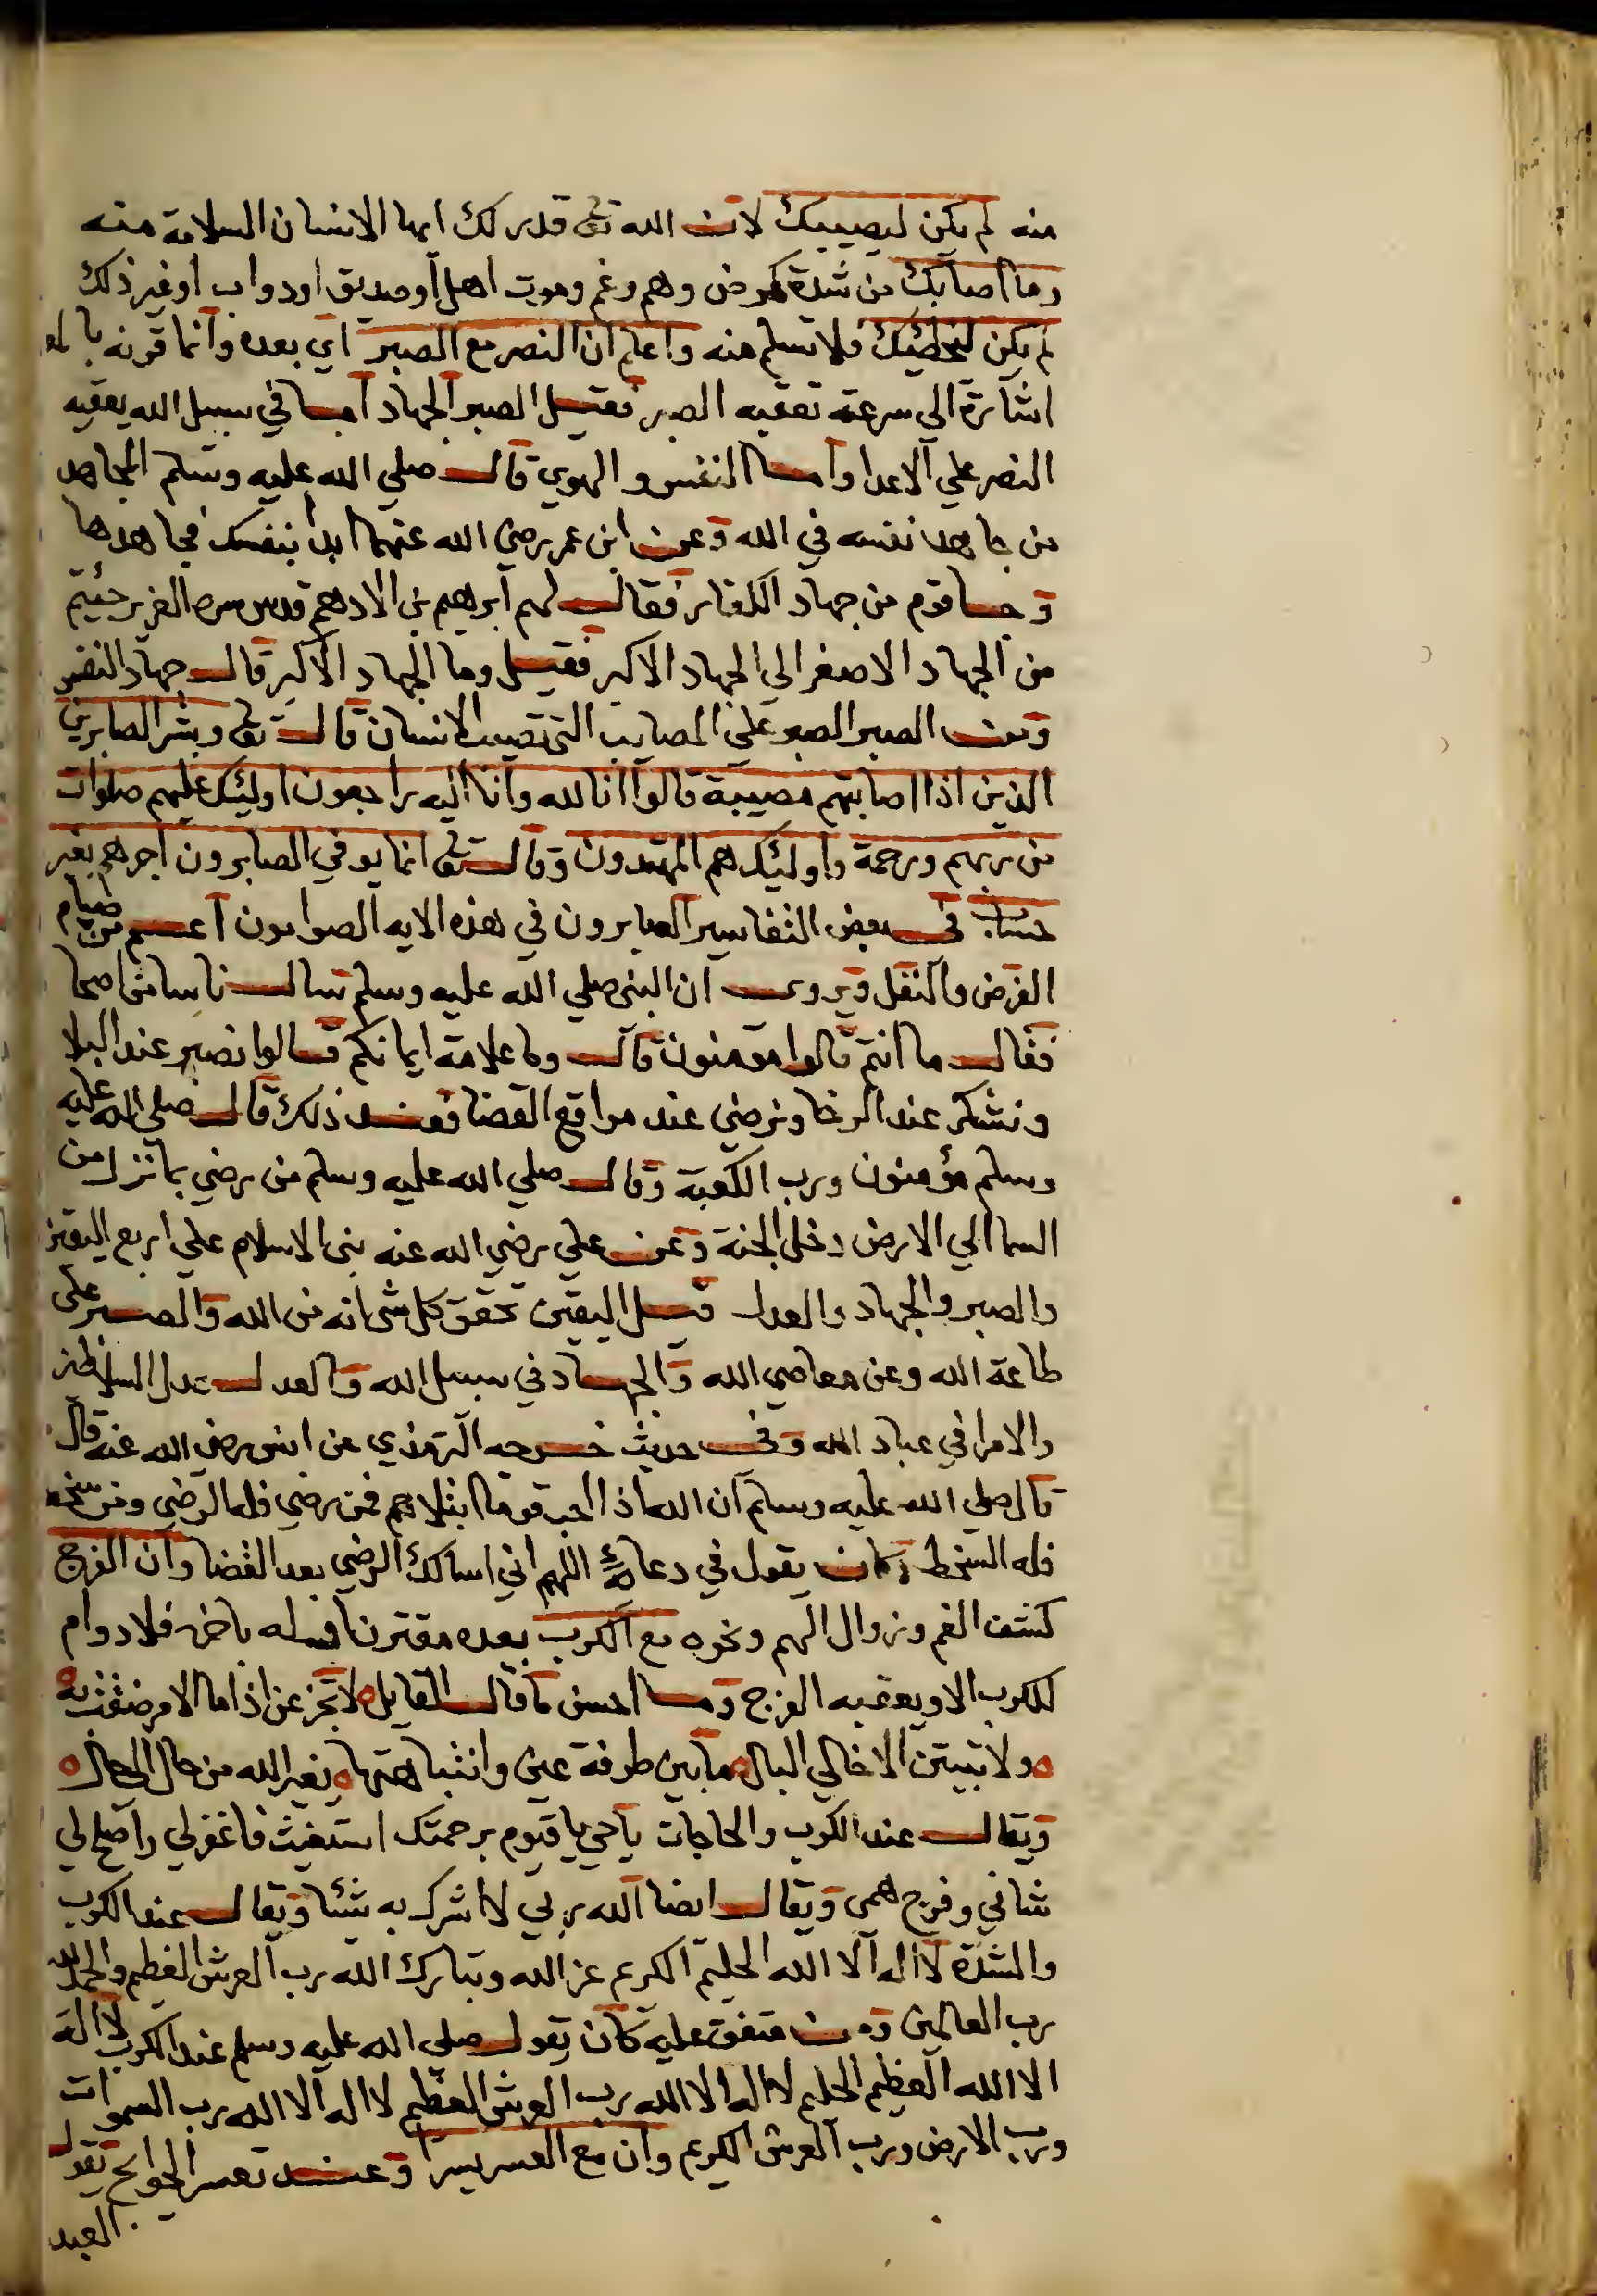 منه لم يكن ليصيبك لان الله تعالى قدر لك ايها الانسان السلامة منه
وما اصابك من شدة كمرض وهم وغم وموت اهل او صديق او دواب او غير ذلك
لم يكن ليخطئك فلا تسلم منه واعلم ان النصر مع الصبر اي بعده وانما قرنه بالمع
اشارة الى سرعة تعقبه الصبر فقيل الصبر الجهاد اما في سبيل الله يعقبه
النصر علي الاعدا واما النفس والهوي قال صلي الله عليه وسلم المجاهد
من جاهد نفسه في الله وعن ابن عمر رضي الله عنهما ابدا بنفسك فجاهدها
وجا قوم من جهاد الكفار فقال لهم ابرهيم بن الادهم قدس سره العزيز جئتم
من الجهاد الاصغر الي الجهاد الاكبر فقيل وما الجهاد الاكبر قال جهاد النفس
ومن الصبر الصبر علي المصايب التي تصيب الانسان قال تعالى وبشر الصابرين
الذين اذا اصابتهم مصيبة قالوا انا لله وانا اليه راجعون اوليئك عليهم صلوات
من ربهم ورحمة واوليئك هم المهتدون وقال تعالى انما يوفي الصابرون اجرهم بغير
حساب في بعض التفاسير الصابرون في هذه الايه الصوامون اعم من صيام
الفرض والنفل ويروى ان النبي صلي الله عليه وسلم سال ناسا من اصحابه
فقال ما انتم قالوا مومنون قال وما علامة ايمانكم قالوا نصبر عند البلا
ونشكر عند الرخا ونرضي عند مواقع القضا فعند ذلك قال صلي الله عليه
وسلم مؤمنون ورب الكعبة وقال صلي الله عليه وسلم من رضي بما نزل من
السما الي الارض دخل الجنة وعن علي رضي الله عنه بني الاسلام علي اربع اليقين
والصبر والجهاد والعدل قيل اليقين تحقق كل شي انه من الله والصبر على
طاعة الله وعن معاصي الله والجهاد في سبيل الله والعدل عدل السلاطين
والامرا في عباد الله وفي حديث خرجه الترمذي عن انس رضي الله عنه قال
قال صلي الله عليه وسلم ان الله اذا احب قوما ابتلاهم فمن رضي فله الرضي ومن سخط
فله السخط وكان يقول في دعائه اللهم اني اسالك الرضي بعد القضا وان الفرج
كشف الغم وزوال الهم ونحوه مع الكرب بعده مقترنا فلا دوام
للكرب الا ويعقبه الفرج وما احسن ما قال القايل لا تجزعن اذا ما الامر ضقت به
ولا تبيتن الا خالي البال ما بين طرفة عين وانتباهتها يغير الله من حال الي حال
ويقال عند الكرب والحاجات يا حي يا قيوم برحمتك استغيث فاغفر لي واصلح لي
شاني وفرج همي ويقال ايضا الله ربي لا اشرك به شئا ويقال عند الكرب
والشدة لا اله الا الله الحليم الكريم عز الله وتبارك الله رب العرش العظيم والحمد لله
رب العالمين ومن متفق عليه كان يقول صلي الله عليه وسلم عند الكرب لا اله
الا الله العظيم الحليم لا اله الا الله رب العرش العظيم لا اله الا الله رب السموات
ورب الارض ورب العرش الكريم وان مع العسر يسرا وعند تعسر الحوايج يقول
العبد